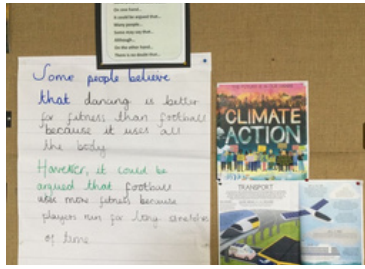 On one hand...
It could be argued that...
Many people...
Some may say that...
Although...
On the other hand...
There is no doubt that...
Some people believe
that dancing is better
for fitness than football
because it uses all
the body.
However, it could be
argued that football
uses more fitness because
players run for long stretches
of time.
CLIMATE
ACTION
TRANSPORT